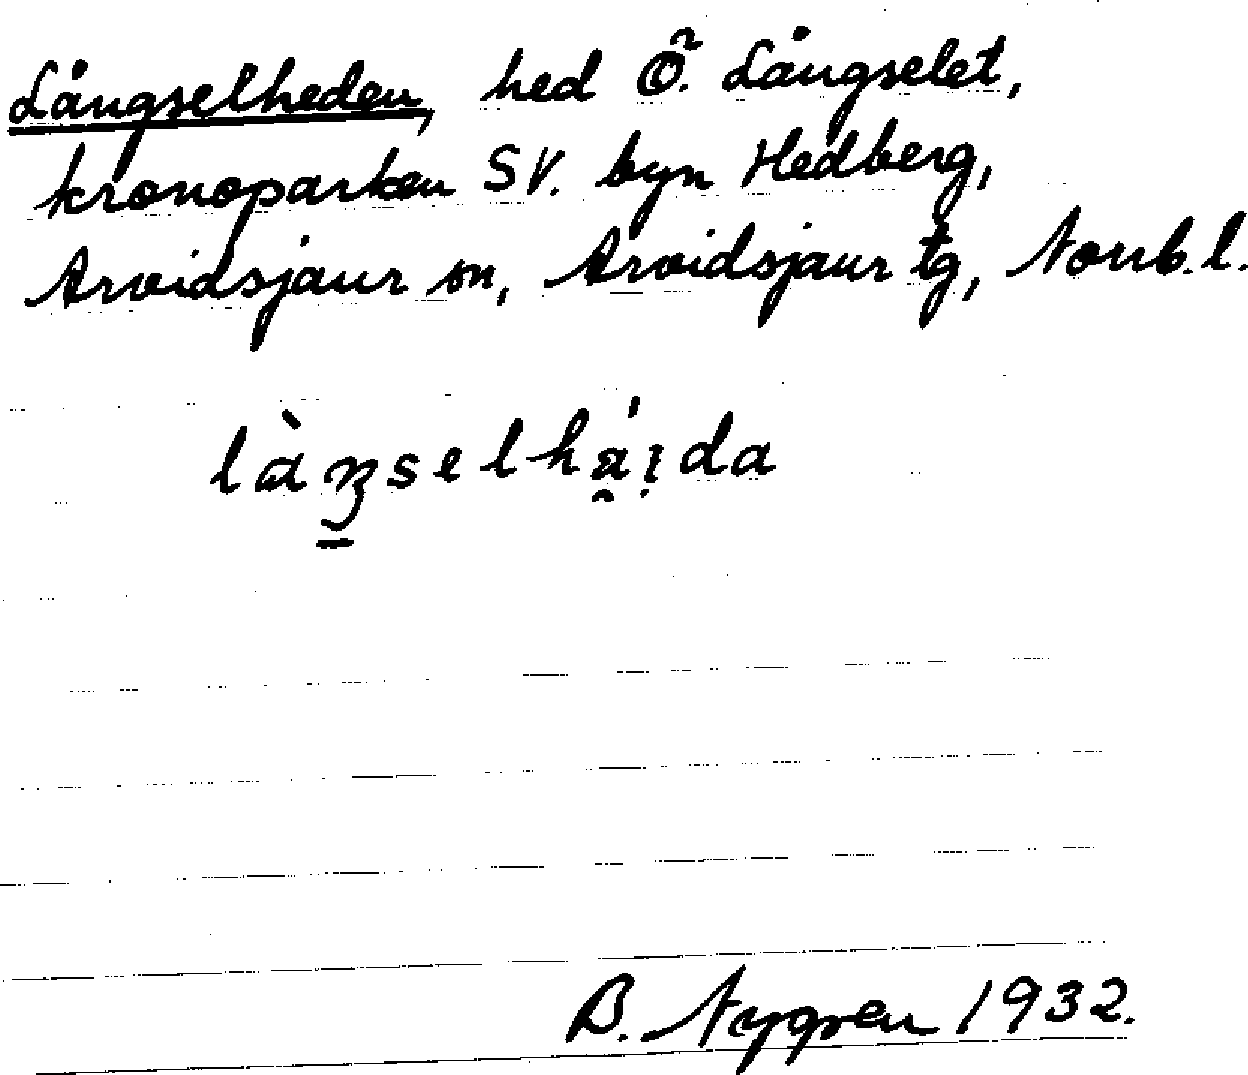 Långselheden, hed Ö. Långselet,
kronoparken SV. byn Hedberg,
Arvidsjaur sn, Arvidsjaur tg, Norrb.l.
B. Nygren 1932.